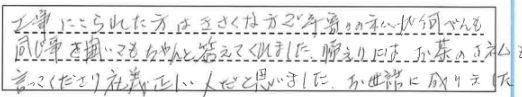 工事にこられた方はきさくな方で年寄りの私が何べんも
同じ事を聞いてもちゃんと答えてくれました。帰えりには、お茶のお礼も
言ってくださり礼義正しい人だと思いました。お世話に成りました